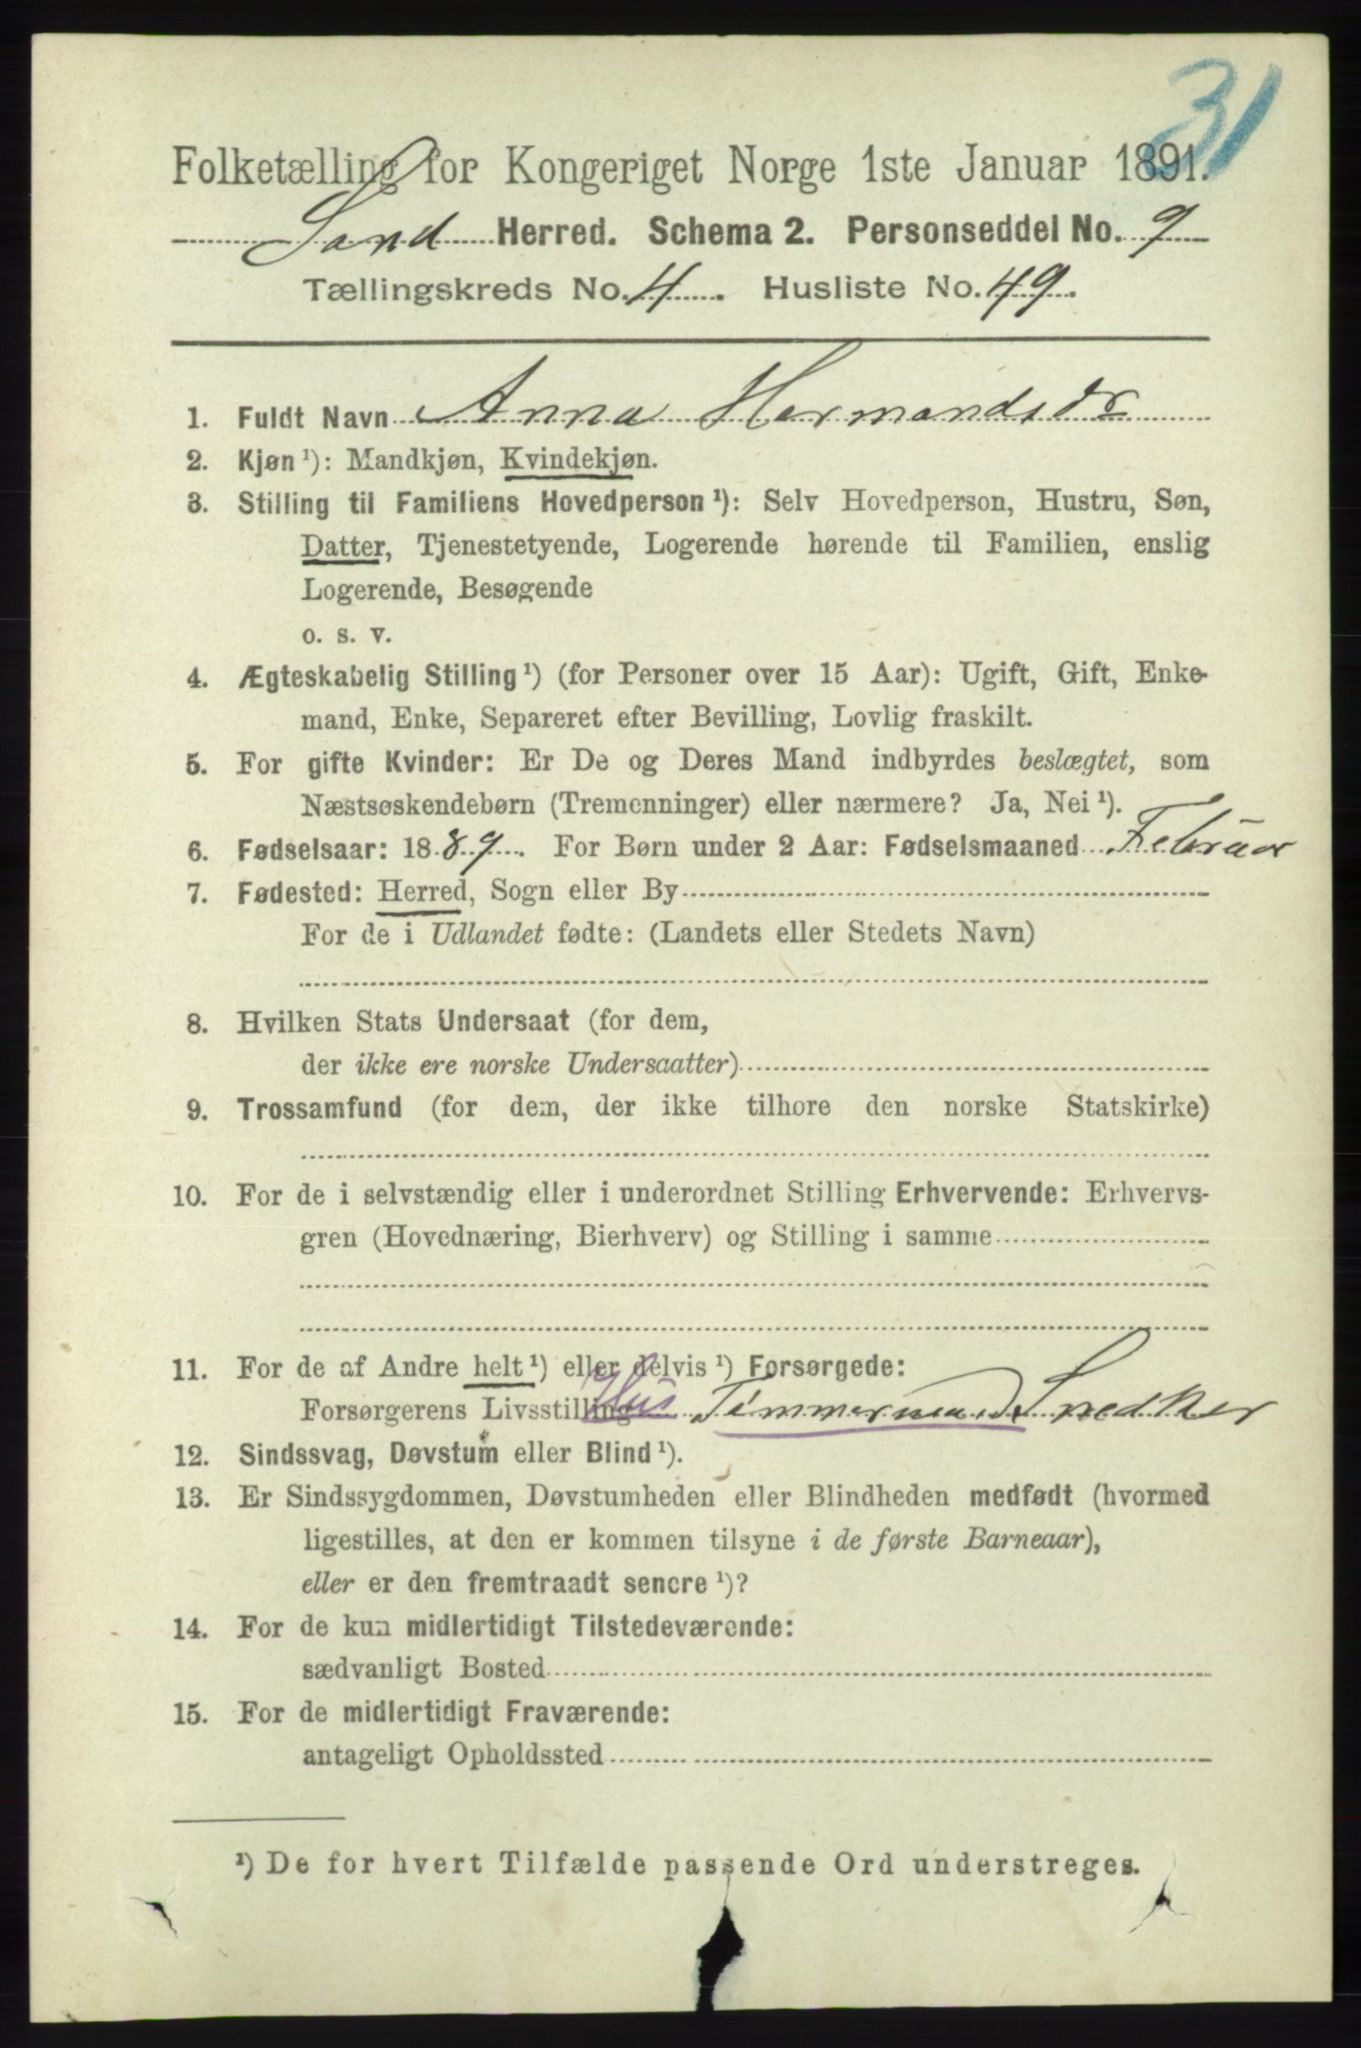 31
Folketælling for Kongeriget Norge 1ste Januar 1891.
Sand Herred. Schema 2. Personseddel No. 9
Tællingskreds No. 4. Husliste No. 49.
1. Fuldt Navn Anna Hermandsdr
2. Kjøn ¹): Mandkjøn, Kvindekjøn.
3. Stilling til Familiens Hovedperson ¹): Selv Hovedperson, Hustru, Søn,
Datter, Tjenestetyende, Logerende hørende til Familien, enslig
Logerende, Besøgende
o. s. v.
4. Ægteskabelig Stilling ¹) (for Personer over 15 Aar): Ugift, Gift, Enke-
mand, Enke, Separeret efter Bevilling, Lovlig fraskilt.
5. For gifte Kvinder: Er De og Deres Mand indbyrdes beslægtet, som
Næstsøskendebørn (Tremenninger) eller nærmere? Ja, Nei ¹).
6. Fødselsaar: 1889. For Børn under 2 Aar: Fødselsmaaned Februar
7. Fødested: Herred, Sogn eller By
For de i Udlandet fødte: (Landets eller Stedets Navn)
8. Hvilken Stats Undersaat (for dem,
der ikke ere norske Undersaatter)
9. Trossamfund (for dem, der ikke tilhøre den norske Statskirke)
10. For de i selvstændig eller i underordnet Stilling Erhvervende: Erhvervs-
gren (Hovednæring, Bierhverv) og Stilling i samme
11. For de af Andre helt ¹) eller delvis ¹) Forsørgede:
Forsørgerens Livsstilling Hus Tømmermand Snedker
12. Sindssvag, Døvstum eller Blind ¹).
13. Er Sindssygdommen, Døvstumheden eller Blindheden medfødt (hvormed
ligestilles, at den er kommen tilsyne i de første Barneaar),
eller er den fremtraadt senere ¹)?
14. For de kun midlertidigt Tilstedeværende:
sædvanligt Bosted
15. For de midlertidigt Fraværende:
antageligt Opholdssted
¹) De for hvert Tilfælde passende Ord understreges.